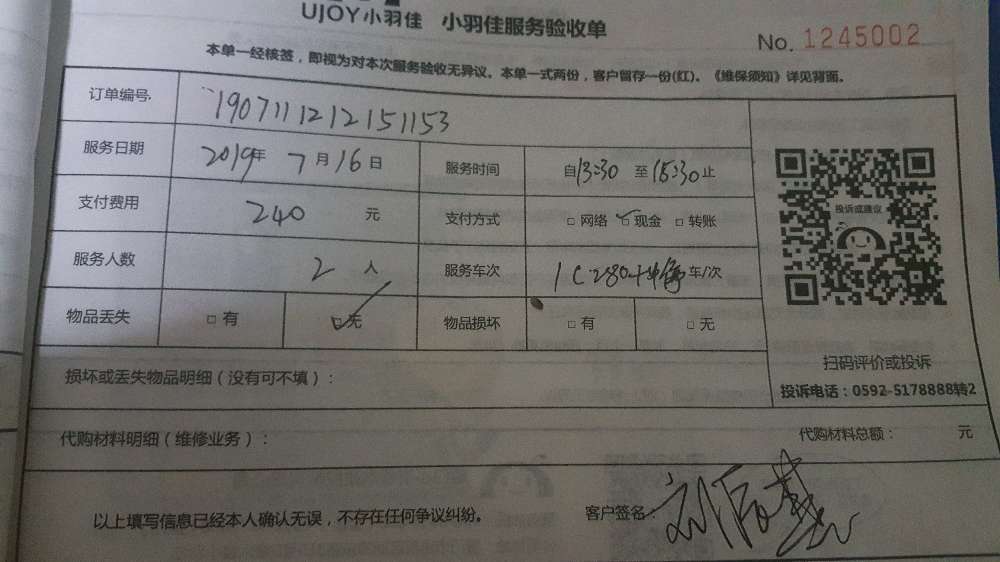 UJOY小羽佳 小羽佳服务验收单
No. 1245002
本单一经核签，即视为对本次服务验收无异议。本单一式两份，客户留存一份(红)。《维保须知》详见背面。
订单编号 190711121215 1153
服务日期 2019年 7月16日 服务时间 自13:30 至15:30止
支付费用 240 元 支付方式 □ 网络 □ 现金 □ 转账
服务人数 2 人 服务车次 车/次
物品丢失 □ 有 □ 无 物品损坏 □ 有 □ 无
投诉或建议
扫码评价或投诉
投诉电话：0592-5178888转2
损坏或丢失物品明细（没有可不填）：
代购材料明细（维修业务）： 代购材料总额： 元
以上填写信息已经本人确认无误，不存在任何争议纠纷。 客户签名：